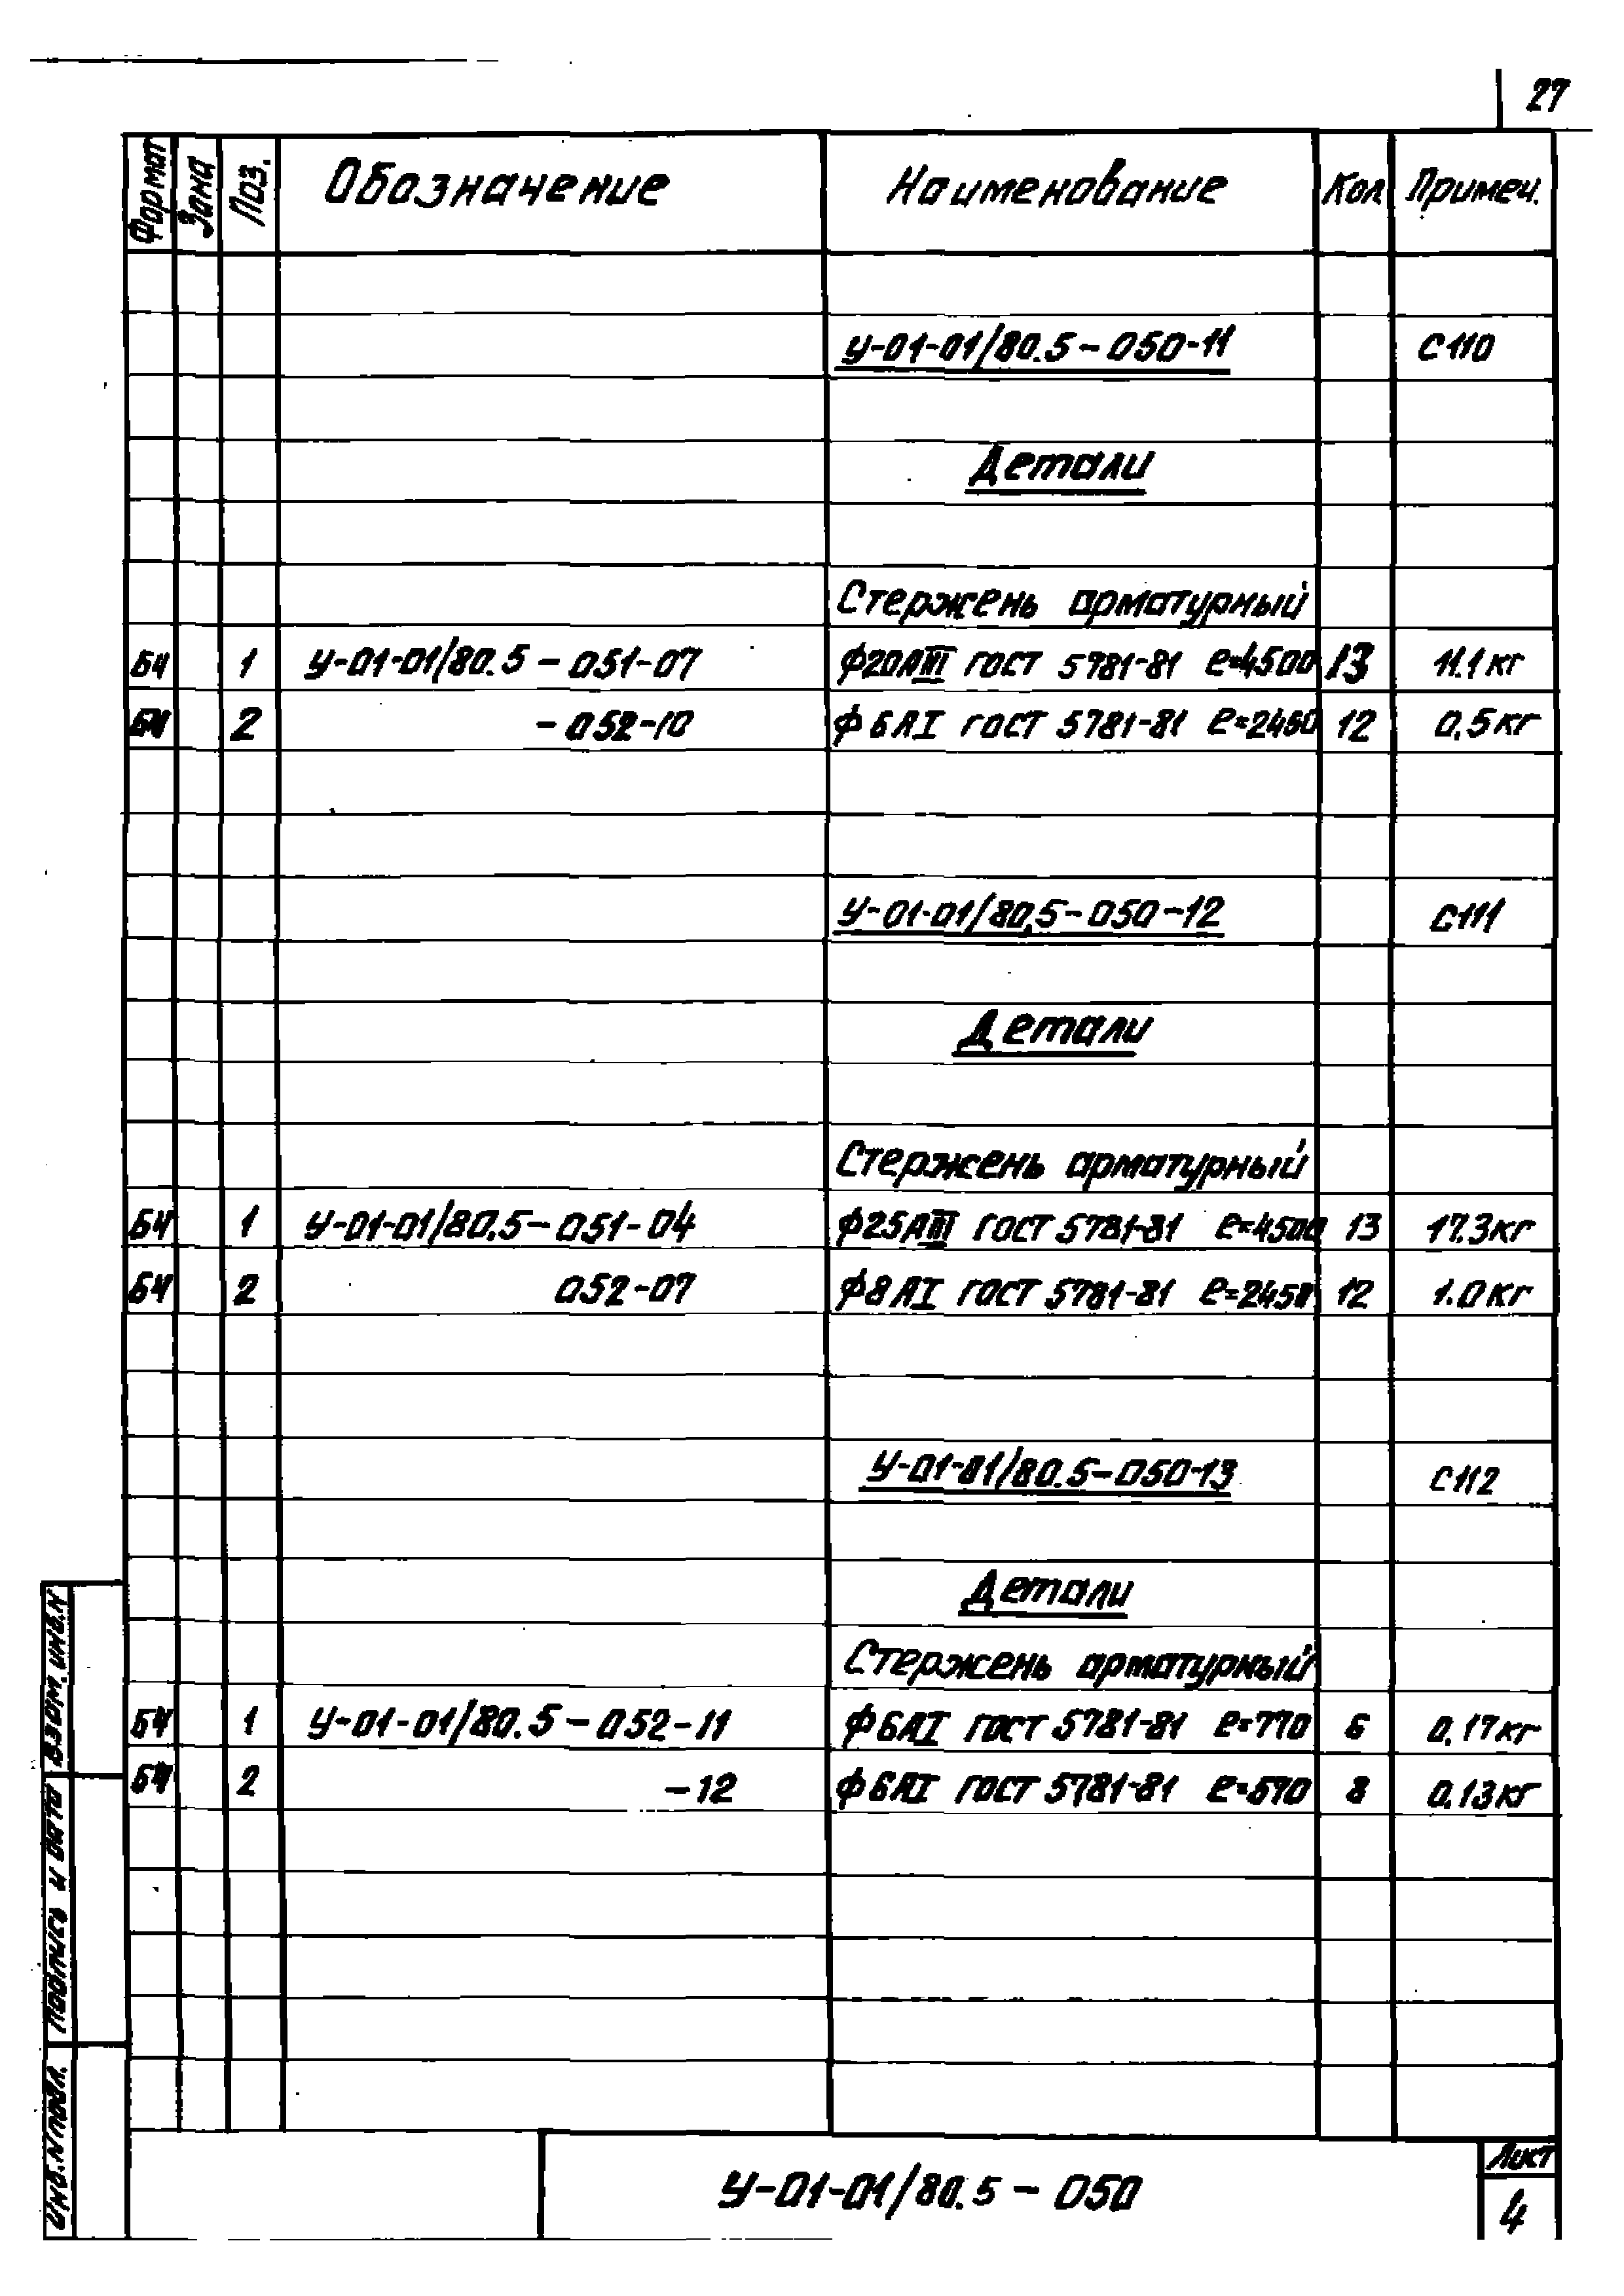 27
Формат Зона Поз. Обозначение Наименование Кол Примеч.
У-01-01/80.5-050-11 С110
Детали
Стержень арматурный
БЧ 1 У-01-01/80.5-051-07 Ф20АIII ГОСТ 5781-81 ℓ=4500 13 11.1кг
БЧ 2 -052-10 Ф6АI ГОСТ 5781-81 ℓ=2450 12 0.5кг
У-01-01/80.5-050-12 С111
Детали
Стержень арматурный
БЧ 1 У-01-01/80.5-051-04 Ф25АIII ГОСТ 5781-81 ℓ=4500 13 17.3кг
БЧ 2 052-07 Ф8АI ГОСТ 5781-81 ℓ=2450 12 1.0кг
У-01-01/80.5-050-13 С112
Детали
Стержень арматурный
БЧ 1 У-01-01/80.5-052-11 Ф6АI ГОСТ 5781-81 ℓ=770 6 0.17кг
БЧ 2 -12 Ф6АI ГОСТ 5781-81 ℓ=570 8 0.13кг
Взам. инв. N
Подпись и дата
Инв. N подл.
У-01-01/80.5-050
Лист
4